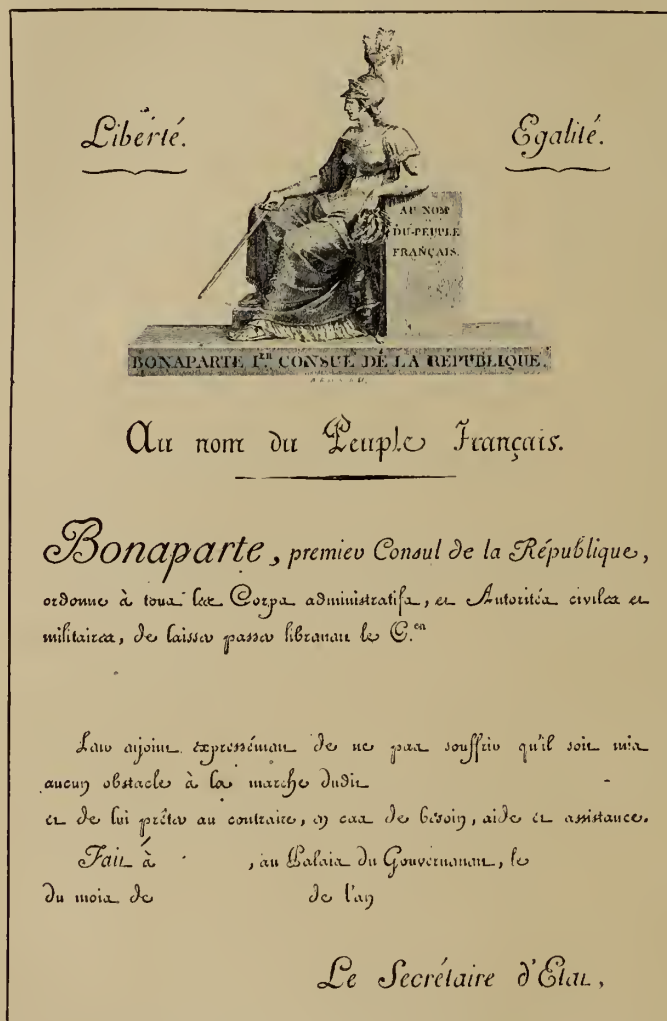 Liberté.
Egalité.
AU NOM
DU PEUPLE
FRANÇAIS.
BONAPARTE I.ER CONSUL DE LA REPUBLIQUE.
Au nom du Peuple Français.
Bonaparte, premier Consul de la République,
ordonne à tous les Corps administratifs, et Autorités civiles et
militaires, de laisser passer librement le C.en
Leur enjoint expressément de ne pas souffrir qu'il soit mis
aucun obstacle à la marche dudit
et de lui prêter au contraire, en cas de besoin, aide et assistance.
Fait à , au Palais du Gouvernement, le
du mois de de l'an
Le Secrétaire d'Etat,